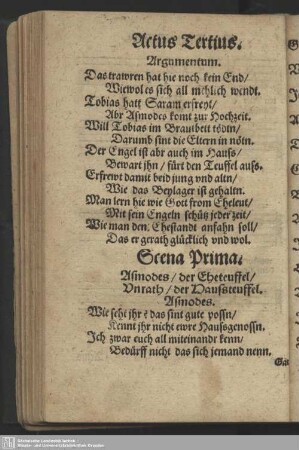 Actus Tertius.
Argumentum.
Das trawren hat hie noch kein End/
Wiewol es sich all niehlich wendt.
Tobias hatt Saram erfreyt/
Abr Asmodes komt zur Hochzeit.
Will Tobias im Brautbett tödtn/
Darumb sint die Eltern in nötn.
Der Engel ist abr auch im Hauss/
Bewart jhn/ fürt den Teuffel auss.
Erfrewt damit beid jung vnd altn/
Wie das Beylager ist gehaltn.
Man lern hie wie Gott from Eheleut/
Mit sein Engeln schütz jeder zeit/
Wie man den Ehestandt anfahn soll/
Das er gerath glücklich vnd wol.
Scena Prima.
Asmodes/ der Eheteuffel/
Vnrath/ der Haussteuffel.
Asmodes.
Wie seht jhr? das sint gute possn/
Kennt jhr nicht ewre Haussgenossn.
Ich zwar euch all miteinandr kenn/
Bedürff nicht das sich jemand nenn.